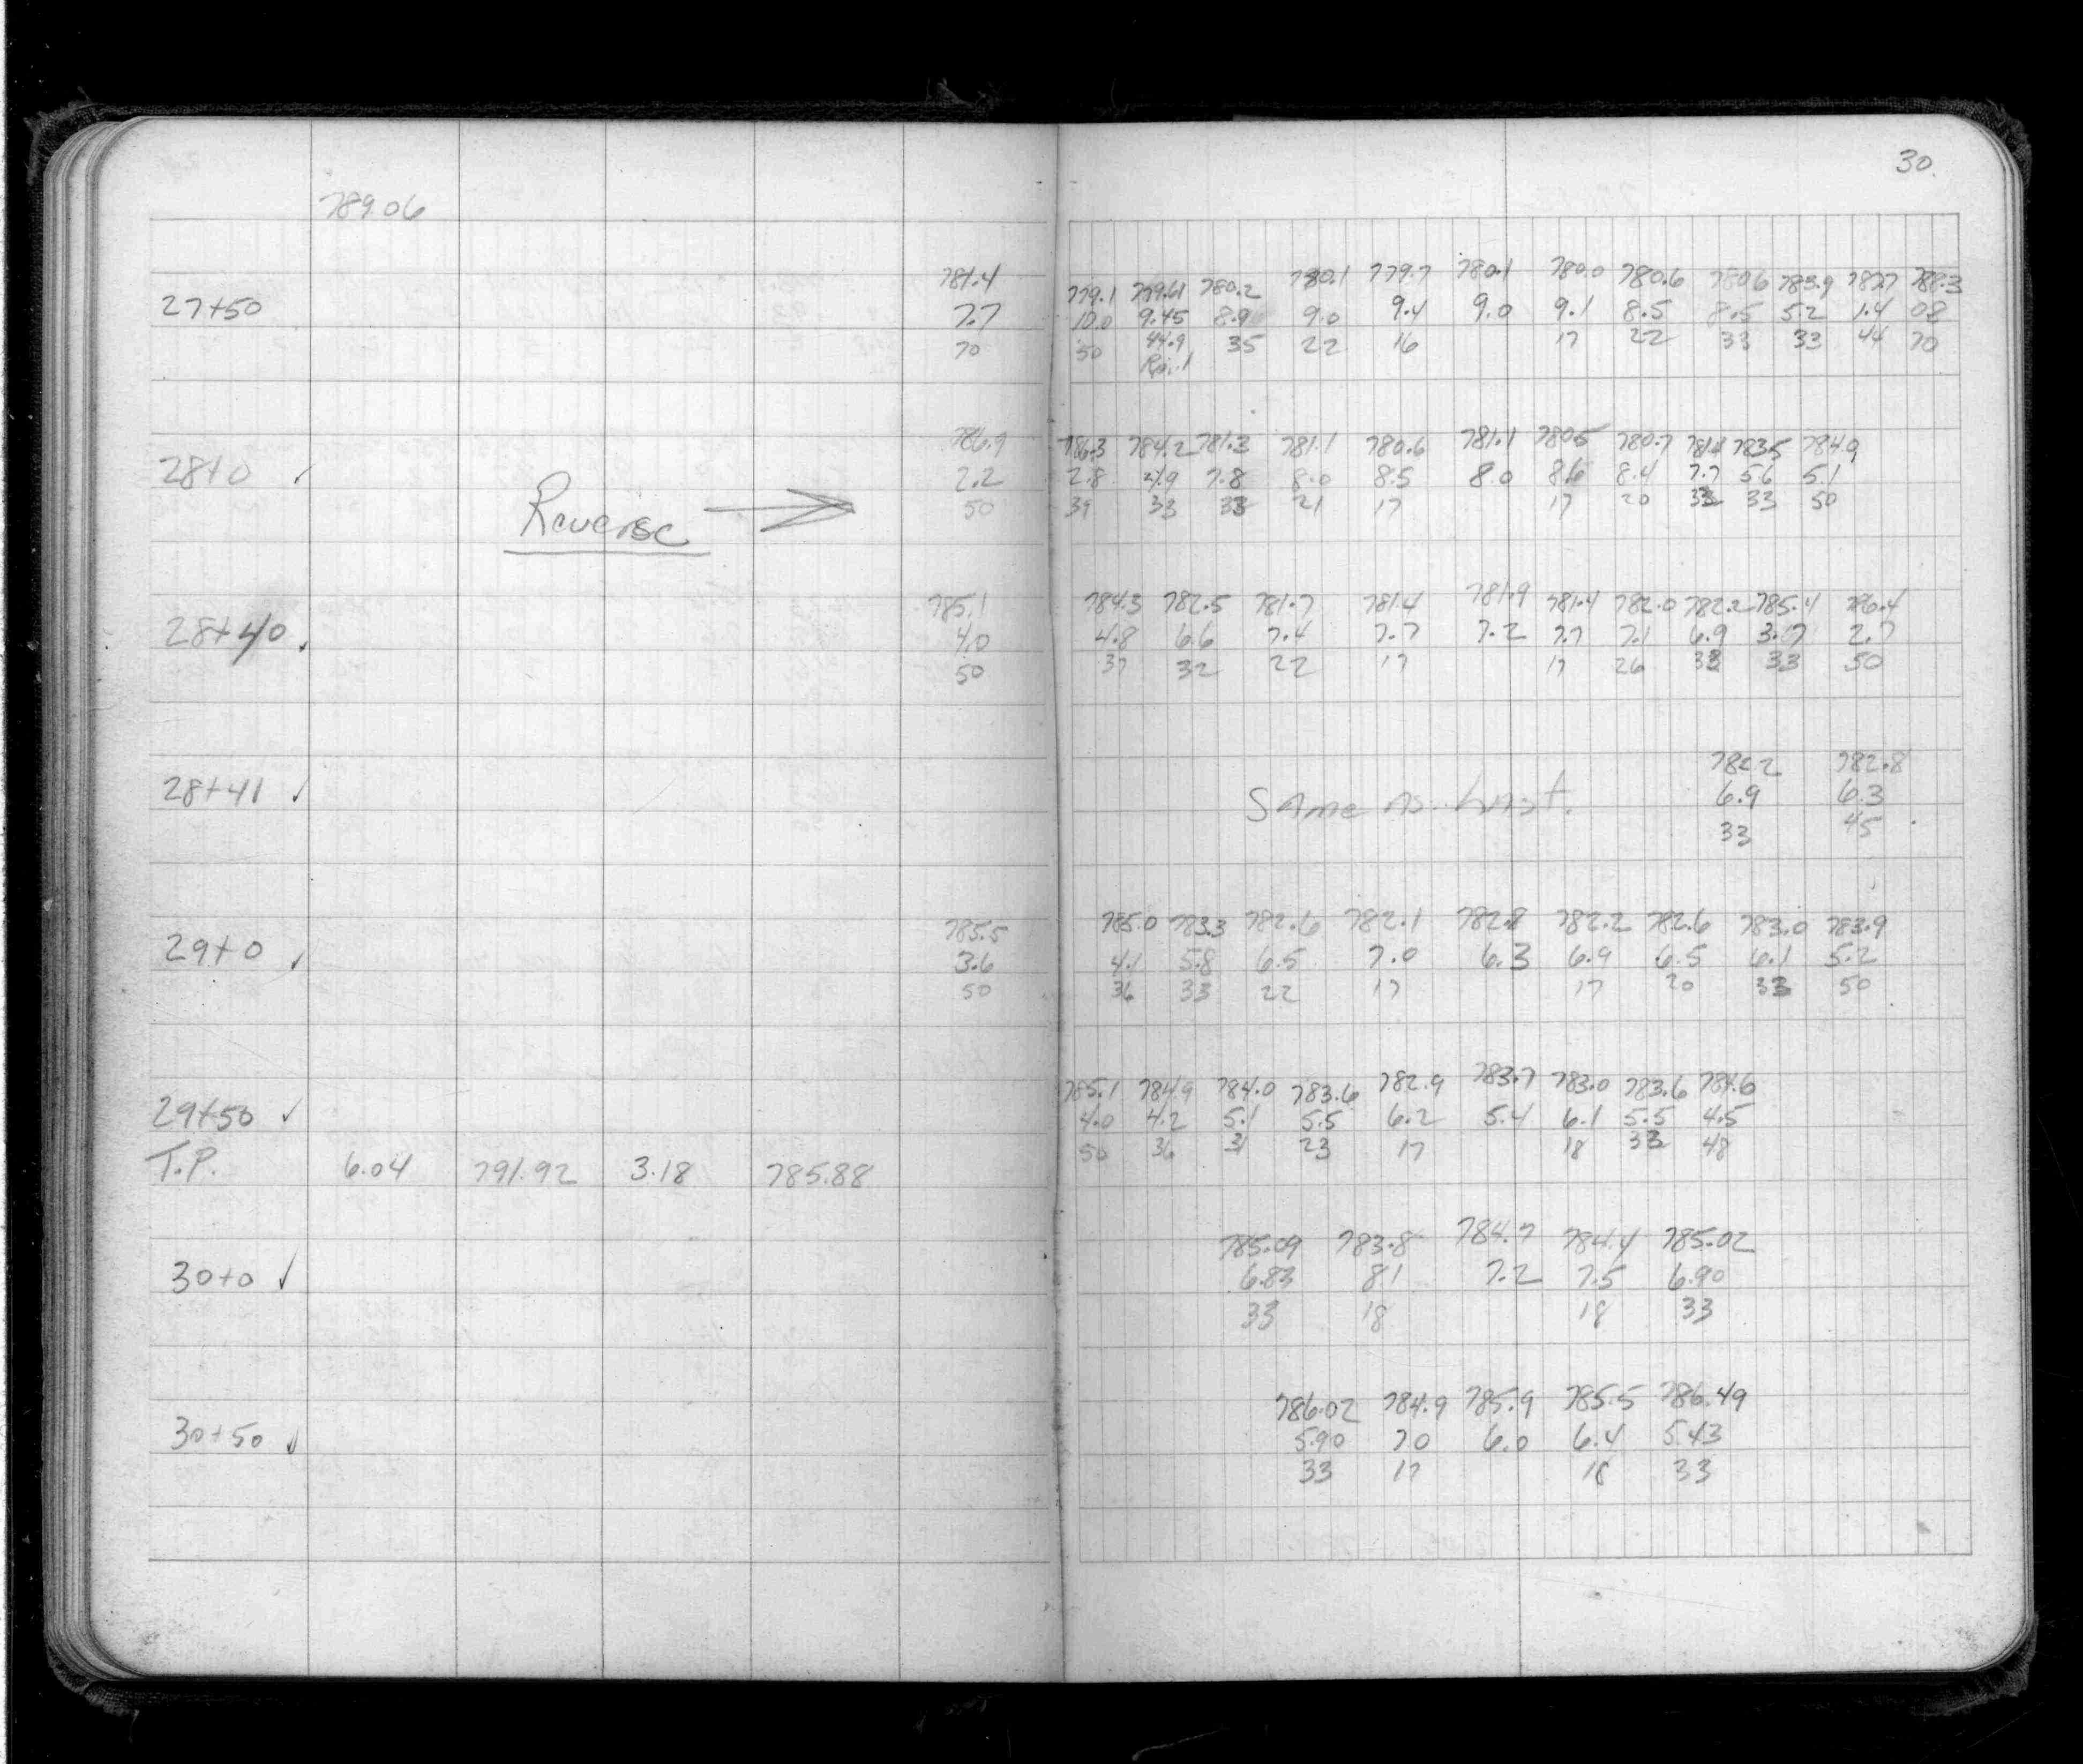 30.
789.06
781.4 779.1 779.61 780.2 780.1 779.7 780.1 780.0 780.6 780.6 783.9 787.7 788.3
27+50 7.7 10.0 9.45 8.9 9.0 9.4 9.0 9.1 8.5 8.5 5.2 1.4 08
70 50 44.9 35 22 16 17 22 33 33 44 70
786.9 786.3 784.2 781.3 781.1 780.6 781.1 780.5 780.7 781.4 783.5 784.0
28+0 ✓ 2.2 2.8 4.9 7.8 8.0 8.5 8.0 8.6 8.4 7.7 5.6 5.1
50 39 33 33 21 17 17 20 33 33 50
Reverse →
785.1 784.3 782.5 781.7 781.4 781.9 781.4 782.0 782.2 785.4 786.4
28+40 ✓ 4.0 4.8 6.6 7.4 7.7 7.2 7.7 7.1 6.9 3.7 2.7
50 37 32 22 17 17 26 33 33 50
782.2 782.8
28+41 ✓ Same as Last. 6.9 6.3
33 45
785.5 785.0 783.3 782.6 782.1 782.8 782.2 782.6 783.0 783.9
29+0 ✓ 3.6 4.1 5.8 6.5 7.0 6.3 6.9 6.5 6.1 5.2
50 36 33 22 17 17 20 33 50
785.1 784.9 784.0 783.6 782.9 783.7 783.0 783.6 784.6
29+50 ✓ 4.0 4.2 5.1 5.5 6.2 5.4 6.1 5.5 4.5
50 36 31 23 17 18 33 48
T.P. 6.04 791.92 3.18 785.88
785.09 783.8 784.7 784.4 785.02
30+0 ✓ 6.83 81 7.2 7.5 6.90
33 18 18 33
786.02 784.9 785.9 785.5 786.49
30+50 ✓ 5.90 70 6.0 6.4 5.43
33 17 18 33